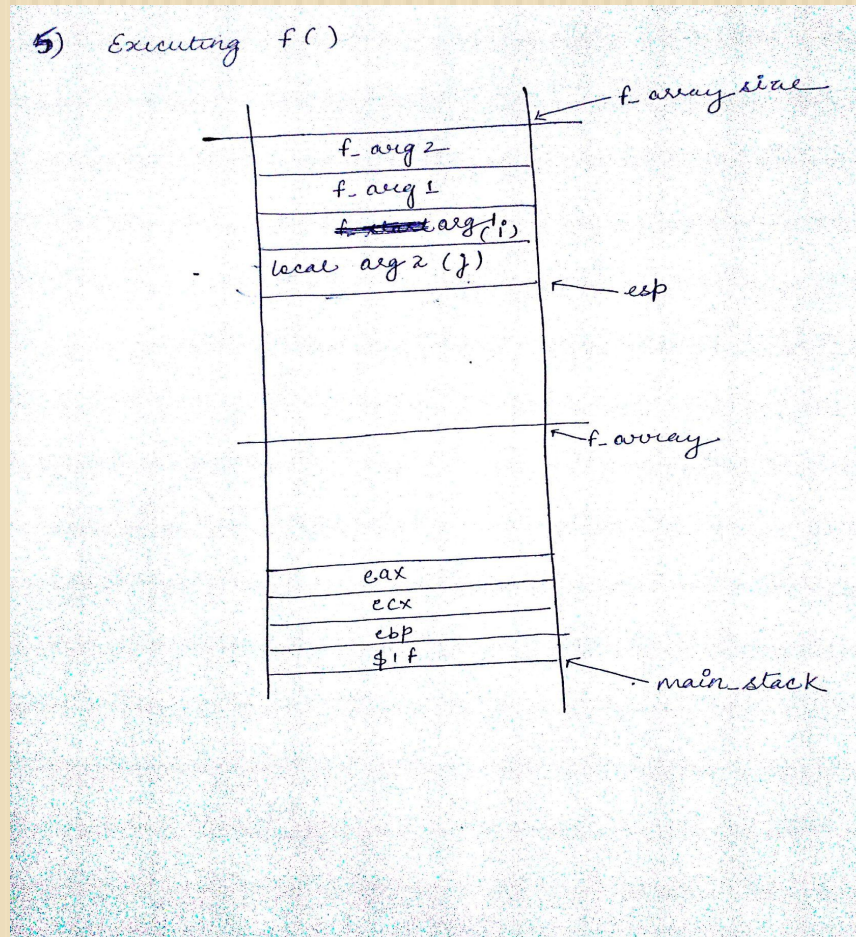 5) Executing f()
f_array size
f_arg 2
f_arg 1
arg 1 (i)
local arg 2 (j)
esp
f_array
eax
ecx
ebp
$1f
main_stack